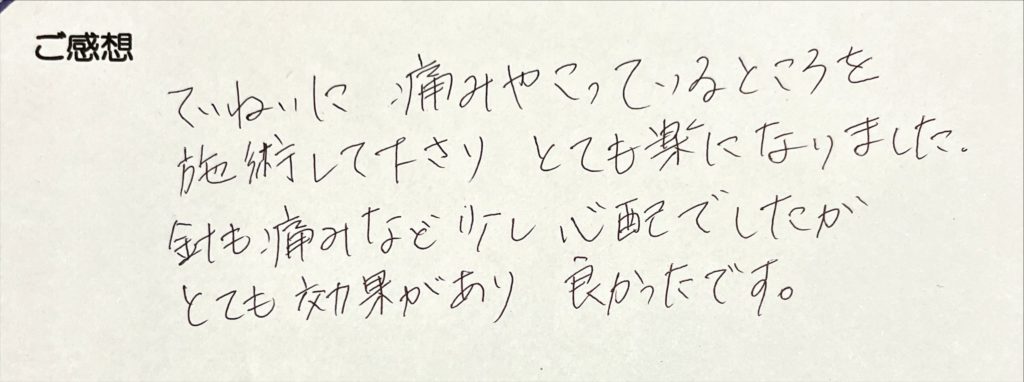 ご感想
ていねいに 痛みやこっているところを
施術して下さり とても楽になりました.
針も痛みなど少し心配でしたが
とても効果があり 良かったです。